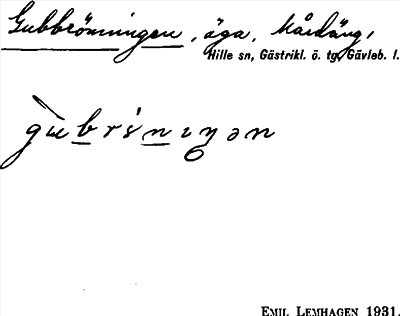 Gubbrönningen, äga, hårdäng,
Hille sn, Gästrikl. ö. tg, Gävleb. l.
EMIL LEMHAGEN 1931.